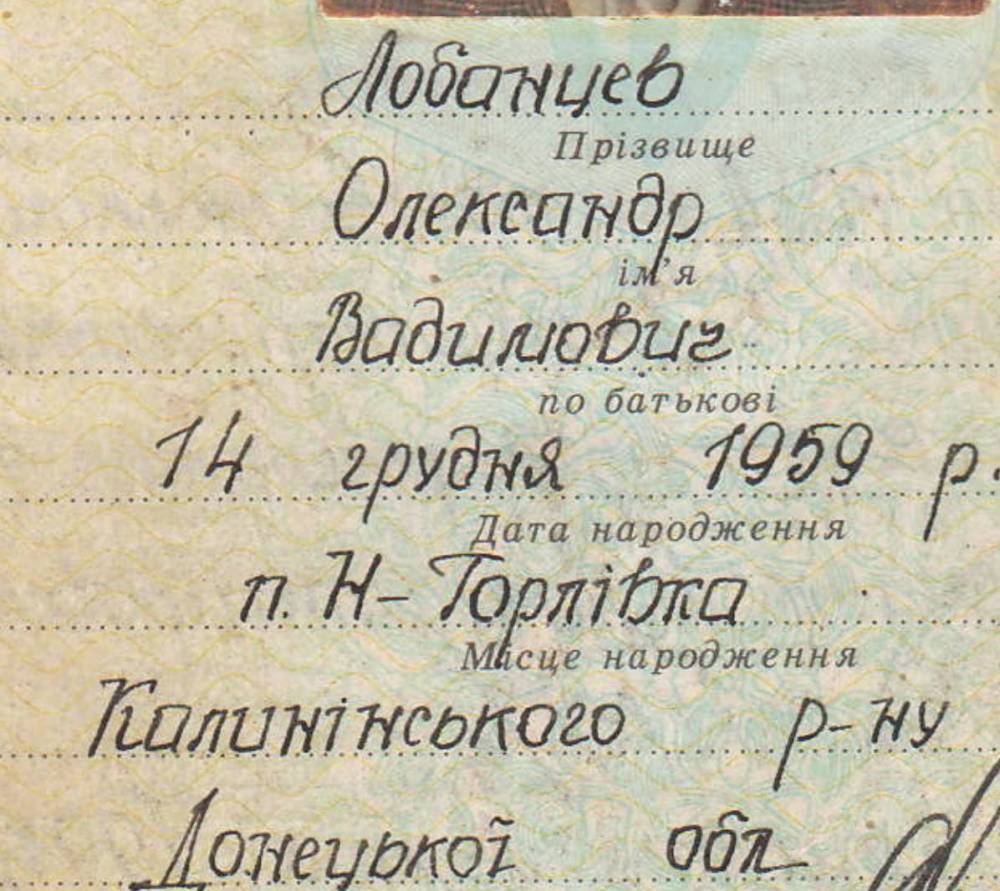 Лобанцев
Прізвище
Олександр
ім'я
Вадимович
по батькові
14 грудня 1959 р.
Дата народження
п. Н-Горлівка
Місце народження
Калинінського р-ну
Донецької обл